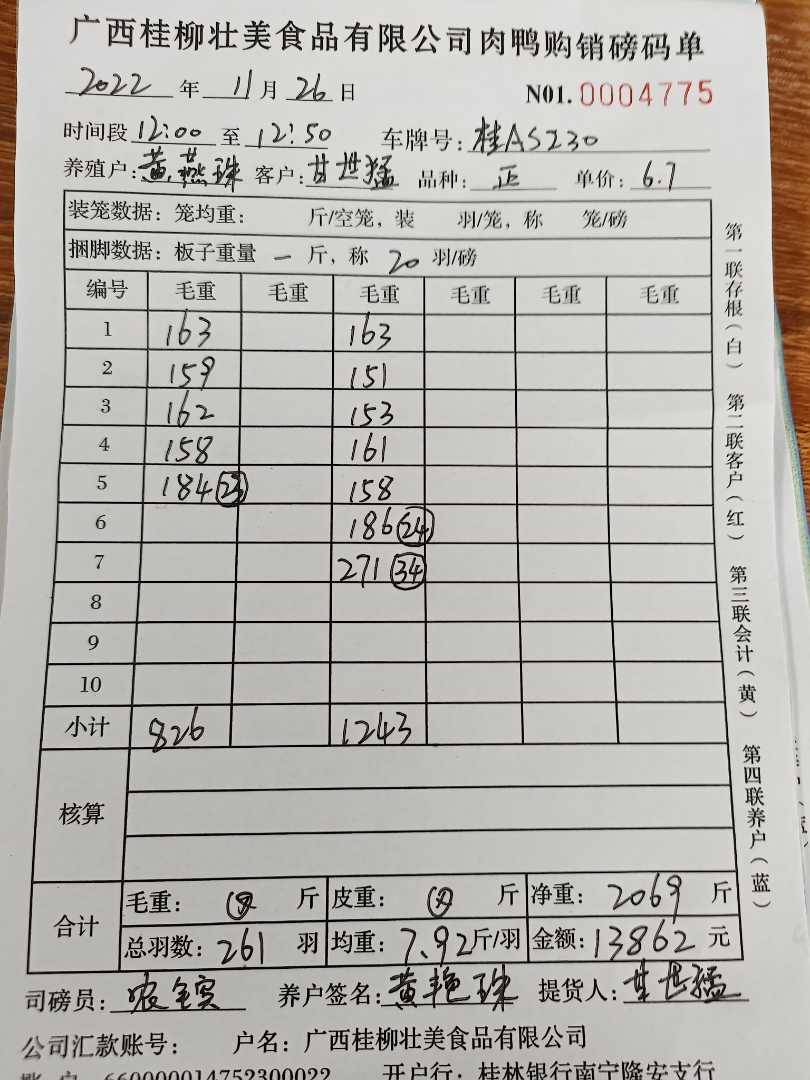 广西桂柳壮美食品有限公司肉鸭购销磅码单
2022 年 11 月 26 日 N01. 0004775
时间段 12:00 至 12:50 车牌号: 桂AS230
养殖户: 黄燕珠 客户: 甘世猛 品种: 正 单价: 6.7
装笼数据: 笼均重: 斤/空笼, 装 羽/笼, 称 笼/磅
捆脚数据: 板子重量 一 斤, 称 20 羽/磅
编号 毛重 毛重 毛重 毛重 毛重 毛重
1 163 163
2 159 151
3 162 153
4 158 161
5 184 23 158
6 186 24
7 271 34
8
9
10
小计 826 1243
核算
合计
毛重: 斤 皮重: 斤 净重: 2069 斤
总羽数: 261 羽 均重: 7.92 斤/羽 金额: 13862 元
司磅员: 养户签名: 黄艳珠 提货人: 甘世猛
公司汇款账号: 户名: 广西桂柳壮美食品有限公司
账 户 660000014752300022 开户行: 桂林银行南宁隆安支行
第一联存根(白) 第二联客户(红) 第三联会计(黄) 第四联养户(蓝)